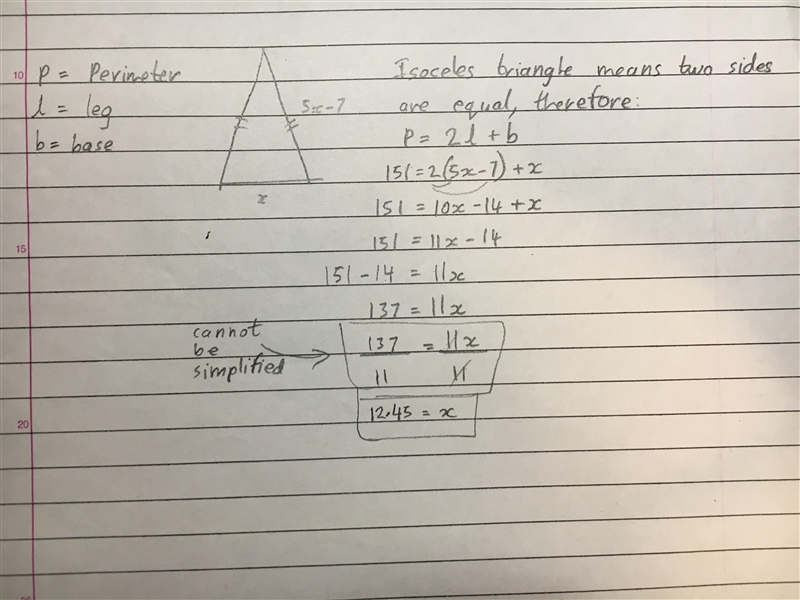 10
P = Perimeter
l = leg
b = base
5x-7
x
Isoceles triangle means two sides
are equal, therefore:
P = 2l + b
151 = 2(5x-7) + x
151 = 10x - 14 + x
15
151 = 11x - 14
151 - 14 = 11x
137 = 11x
cannot
be
simplified
137 = 11x
11 11
12.45 = x
20